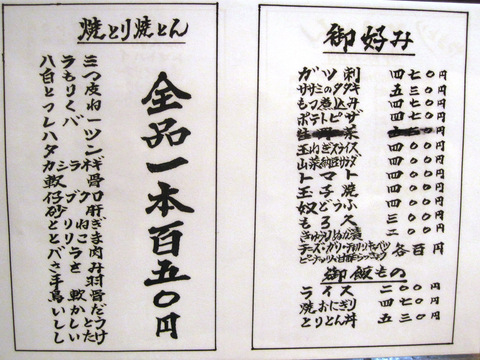 焼とり焼とん
ハラミ
白もつ
とり皮
つくね
レバー
ハツ
タン
カシラ
軟骨
仔ブクロ
砂肝
とりねぎま
バラ肉
ささみ
手羽
鳥軟骨
いかだ
ししとう
しいたけ
全品一本百五〇円
御好み
ガツ刺 四七〇円
ササミのタタキ 五三〇円
もつ煮込み 四七〇円
ポテトピザ 四七〇円
玉ねぎスライス 四〇〇円
山菜納豆サラダ 四〇〇円
トマト 四〇〇円
玉子焼 四〇〇円
奴どうふ 四〇〇円
もろ久 三〇〇円
きゅうり 二〇〇円
チーズ・ガリ・キャベツ 各百円
ピーナッツ・甘酢らっきょう
御飯もの
ライス 二〇〇円
焼おにぎり 四七〇円
とりとん丼 五三〇円